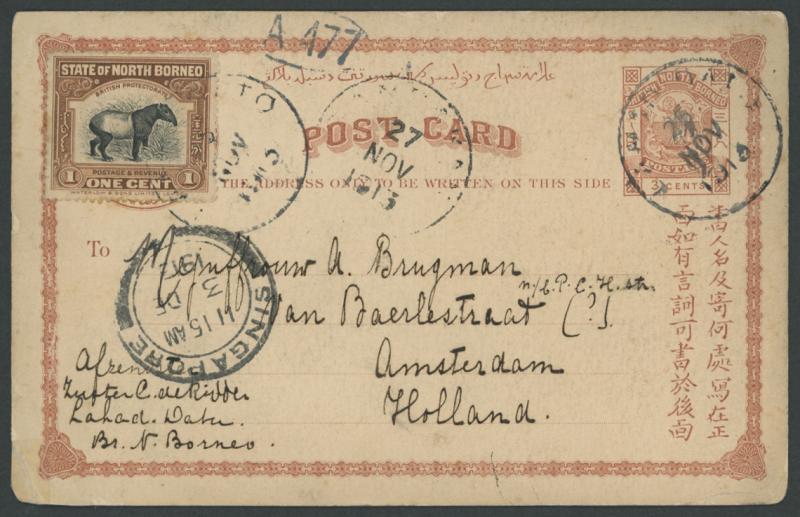 A 477
STATE OF NORTH BORNEO
BRITISH PROTECTORATE
POSTAGE & REVENUE
1 ONE CENT 1
27
NOV
1913
POST CARD
THE ADDRESS ONLY TO BE WRITTEN ON THIS SIDE
BRITISH NORTH BORNEO
POSTAGE
3 CENTS
NOV
1913
To
Mejuffrouw A. Brugman
Van Baerlestraat (?).
Amsterdam
Holland.
SINGAPORE
11 15 AM
3
DE
Zuster C. de Ridder
Lahad. Datu
Br. N. Borneo.
書人名及寄何處寫在正
面如有言詞可書於後面